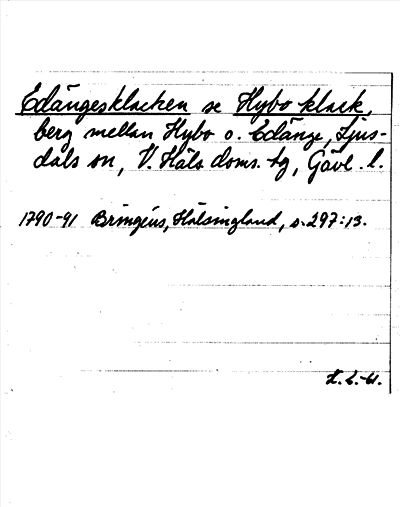 Edängesklacken se Hybo klack,
berg mellan Hybo o. Edänge, Ljus-
dals sn, V. Häls doms. tg, Gävl. l.
1790-91 Bringéus, Hälsingland, s. 297:13.
H. L.-61.